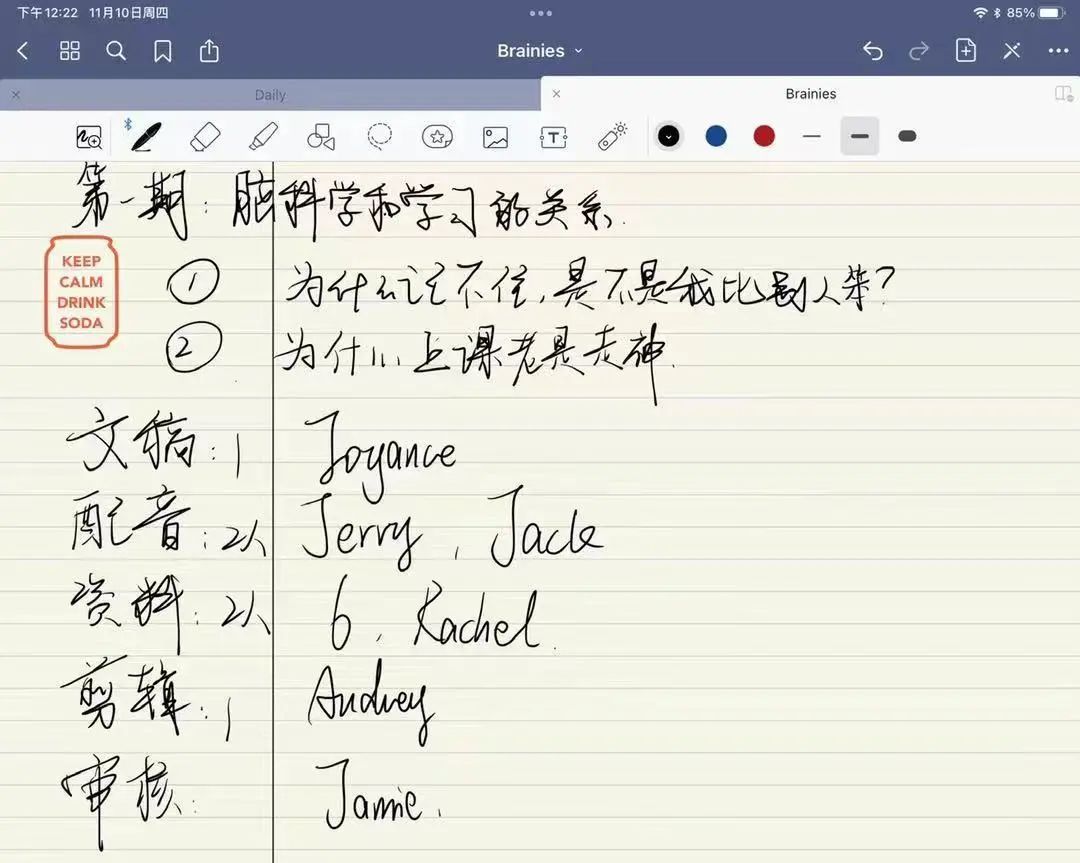 下午12:22 11月10日周四
85%
Brainies
Daily
Brainies
T
第一期：脑科学和学习的关系.
KEEP
CALM
DRINK
SODA
① 为什么记不住，是不是我比别人笨？
② 为什么上课老是走神.
文稿：1 Joyance
配音：2人 Jerry, Jack
资料：2人 6, Rachel.
剪辑：1 Audrey
审核： Jamie.